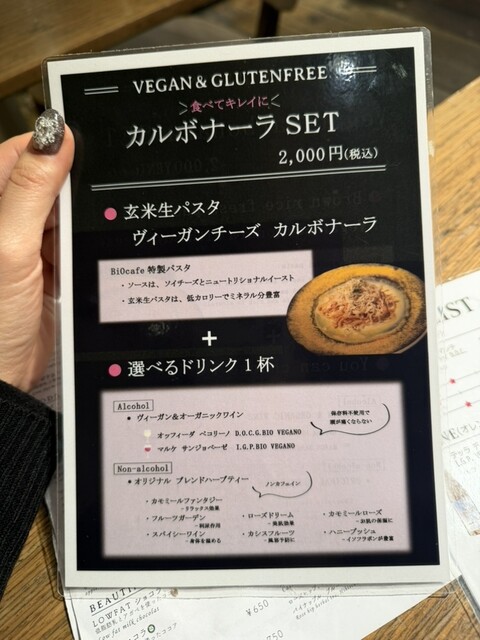 VEGAN & GLUTENFREE
食べてキレイに
カルボナーラ SET
2,000円(税込)
● 玄米生パスタ
ヴィーガンチーズ カルボナーラ
BiOcafe 特製パスタ
・ソースは、ソイチーズとニュートリショナルイースト
・玄米生パスタは、低カロリーでミネラル分豊富
+
● 選べるドリンク1杯
Alcohol
● ヴィーガン&オーガニックワイン
保存料不使用で
頭が痛くならない
オッフィーダ ペコリーノ D.O.C.G.BIO VEGANO
マルケ サンジョベーゼ I.G.P.BIO VEGANO
Non-alcohol
● オリジナル ブレンドハーブティー
ノンカフェイン
・カモミールファンタジー
-リラックス効果
・フルーツガーデン
・ローズドリーム
-美肌効果
・カモミールローズ
・スパイシーワイン
-身体を温める
・カシスフルーツ
-風邪予防に
・ハニーブッシュ
-イソフラボンが豊富
BEAUTI
LOWFAT ショコラ
Low fat milk chocolat
¥650